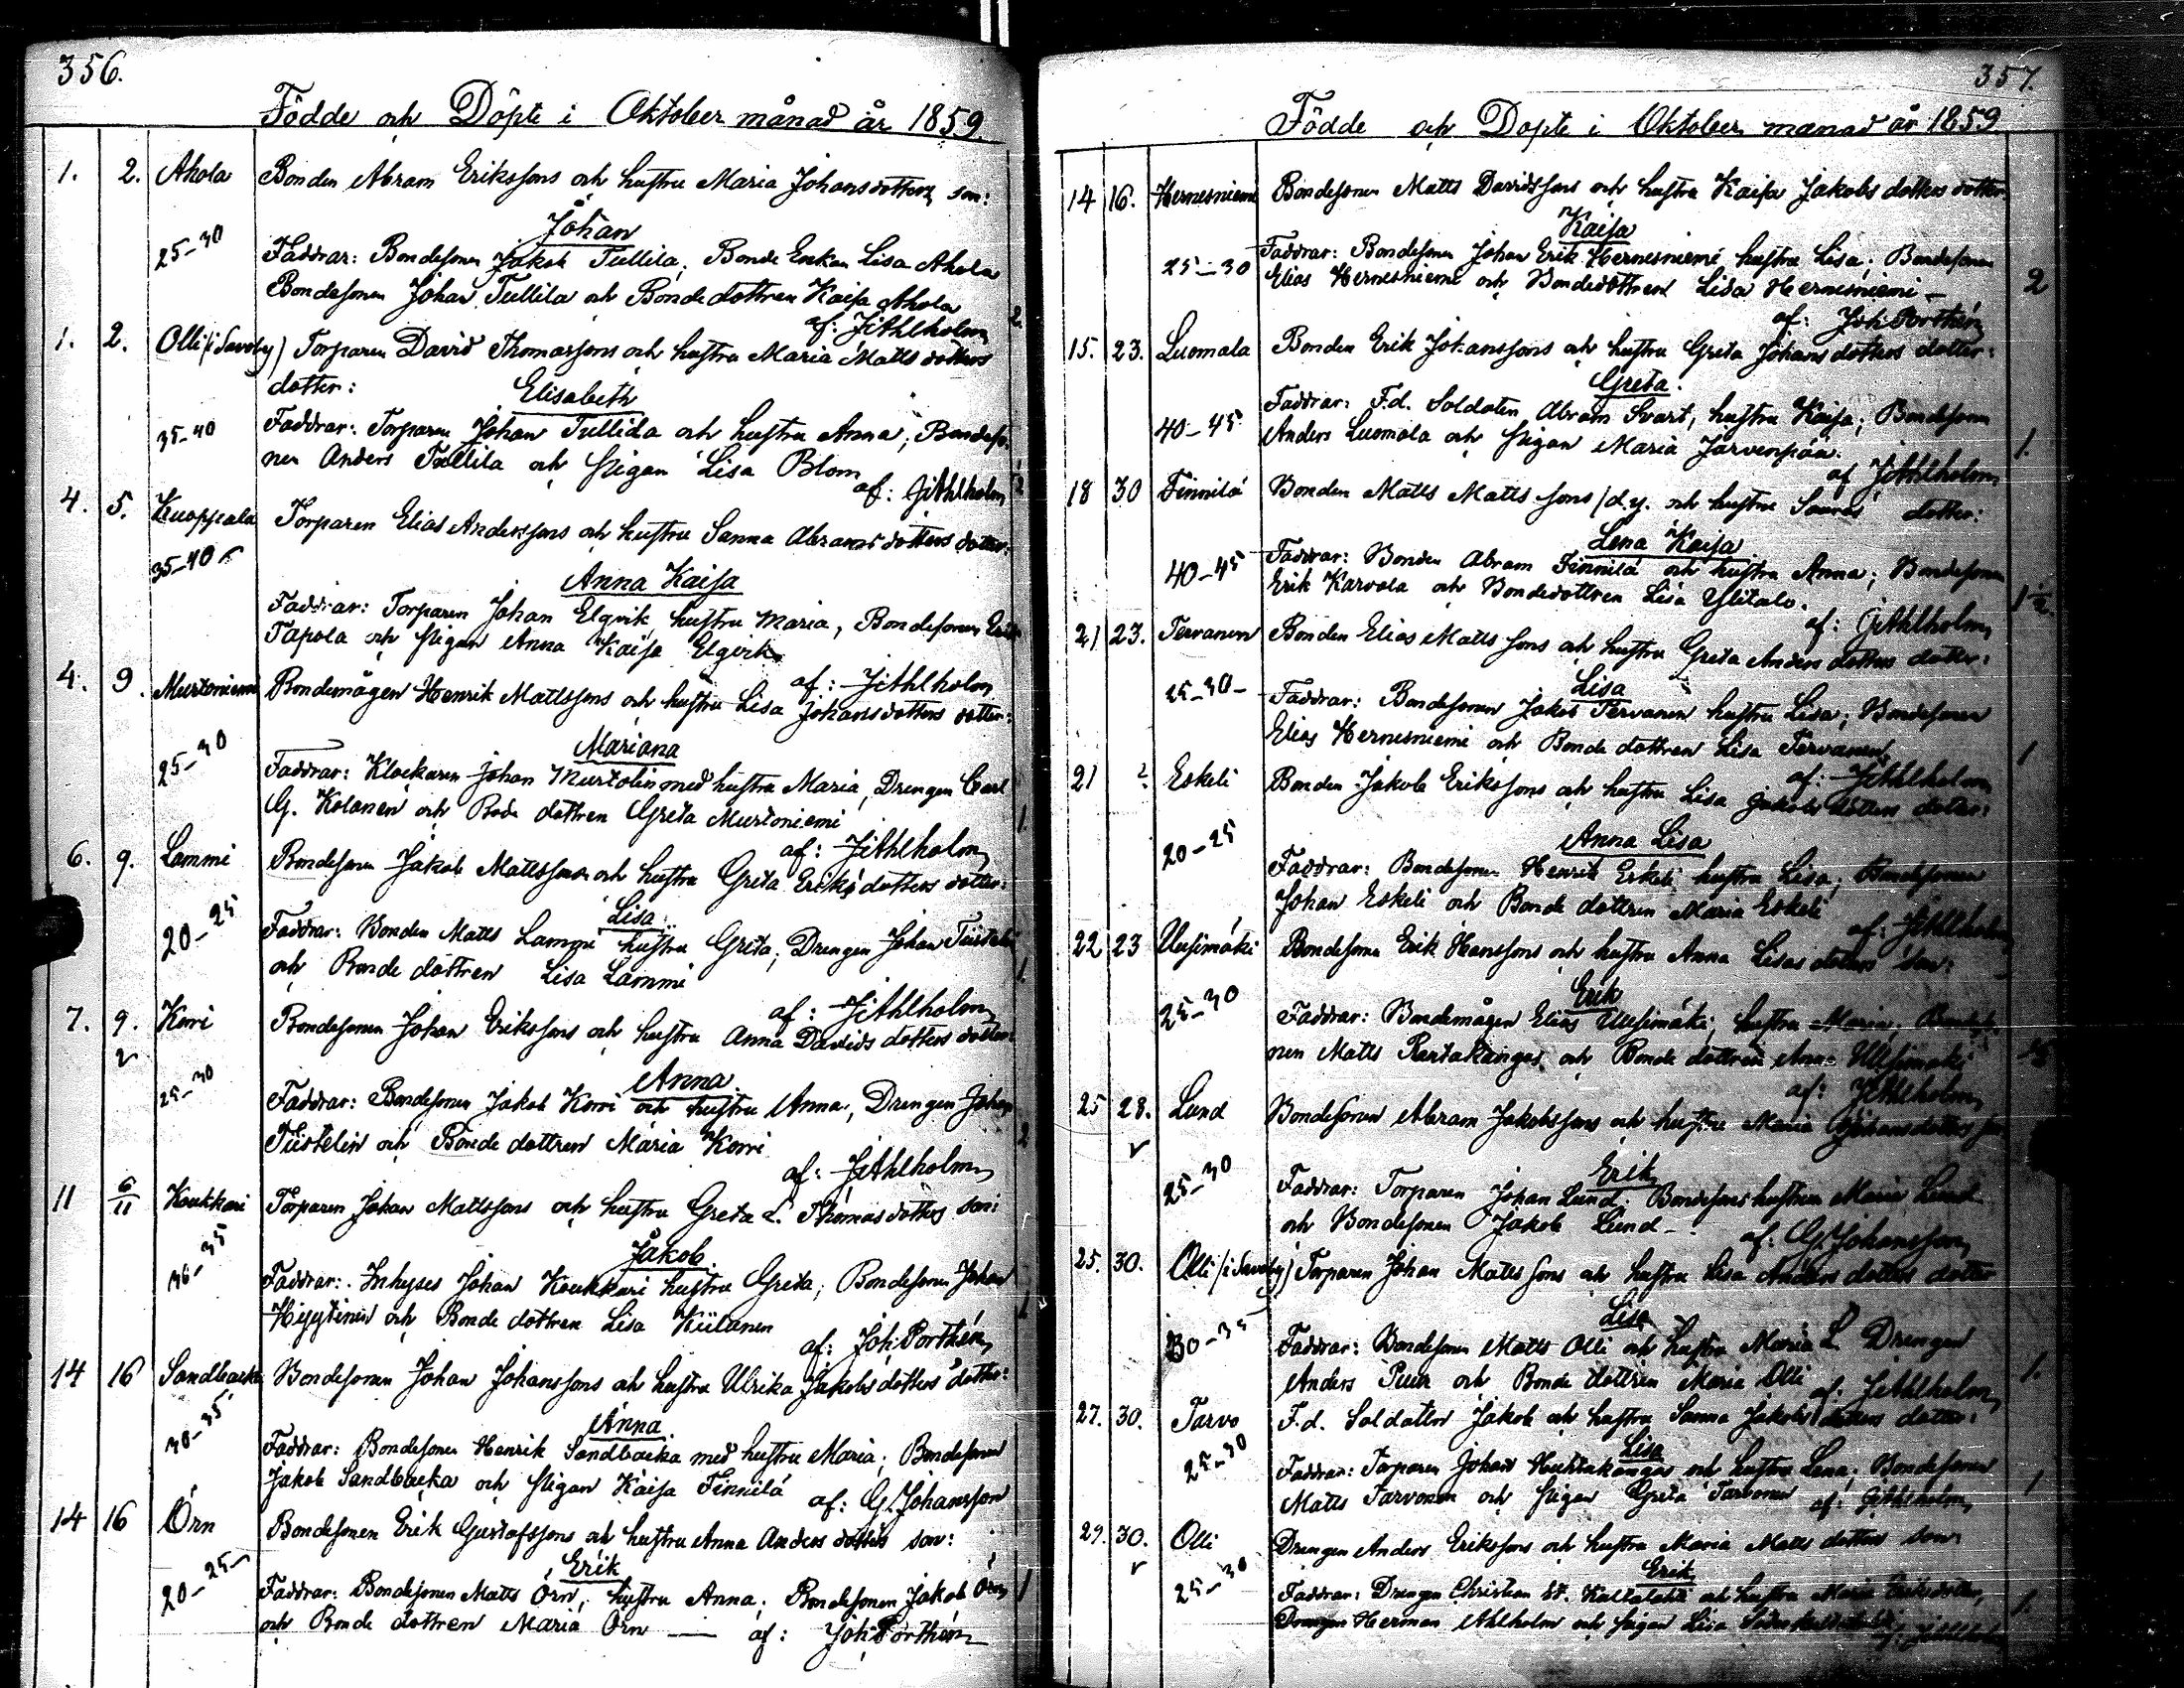 356.
Födde och Döpte i Oktober månad år 1859.
1. 2. Ahola Bonden Abram Erikssons och hustru Maria Johansdotters son:
Johan
25-30 Faddrar: Bondesonen Jakob Tullila, Bonde Enkan Lisa Ahola
Bondesonen Johan Tullila och Bondedottren Kaisa Ahola
af: JAhlholm 2.
1. 2. Olli (i Savoby) Torparen David Thomassons och hustru Maria Matts dotters
dotter: Elisabeth
35-40 Faddrar: Torparen Johan Tullila och hustru Anna; Bondeso-
nen Anders Tullila och Pigan Lisa Blom
af: JAhlholm
4. 5. Kuoppala Torparen Elias Anderssons och hustru Sanna Abrams dotters dotter:
35-40
Anna Kaisa
Faddrar: Torparen Johan Elgvik, hustru Maria, Bondesonen Erik
Tapola och Pigan Anna Kaisa Elgvik
af: JAhlholm
4. 9. Murtoniemi Bondemågen Henrik Mattssons och hustru Lisa Johansdotters dotter:
Mariana
25-30 Faddrar: Klockaren Johan Murtolin med hustru Maria, Drengen Carl
G. Kolanen och Bode dottren Greta Murtoniemi 1.
af: JAhlholm
6. 9. Lammi Bondesonen Jakob Mattssons och hustru Greta Eriks dotters dotter:
Lisa
20-25 Faddrar: Bonden Matts Lammi hustru Greta; Drengen Johan Tiistelin
och Bonde dottren Lisa Lammi 1.
af: JAhlholm
7. 9. Korri Bondesonen Johan Erikssons och hustru Anna Davids dotters dotter:
Anna
25-30 Faddrar: Bondesonen Jakob Korri och hustru Anna, Drengen Johan
Tiistelin och Bonde dottren Maria Korri 2
af: JAhlholm
11 6/11 Koukkari Torparen Johan Mattssons och hustru Greta L. Thomas dotters son:
Jakob
30-35 Faddrar: Inhyses Johan Koukkari hustru Greta; Bondesonen Johan
Hyytinen och Bonde dottren Lisa Kiilanen 1
af: Joh: Porthén
14 16 Sandbacka Bondesonen Johan Johanssons och hustru Ulrika Jakobs dotters dotter:
Anna
30-35 Faddrar: Bondesonen Henrik Sandbacka med hustru Maria; Bondesonen
Jakob Sandbacka och Pigan Kaisa Finnilä
af: G. Johansson
14 16 Örn Bondesonen Erik Gustafssons och hustru Anna Anders dotters son:
Erik
20-25 Faddrar: Bondesonen Matts Örn, hustru Anna; Bondesonen Jakob Örn 1
och Bonde dottren Maria Örn — af: Joh: Porthén
357.
Födde och Döpte i Oktober månad år 1859
14 16. Hernesniemi Bondesonen Matts Davidssons och hustru Kaisa Jakobs dotters dotter:
Kaisa
25-30 Faddrar: Bondesonen Johan Erik Hernesniemi hustru Lisa; Bondesonen
Elias Hernesniemi och Bondedottren Lisa Hernesniemi — 2
af: Joh: Porthén
15. 23. Luomala Bonden Erik Johanssons och hustru Greta Johans dotters dotter:
Greta.
40-45 Faddrar: F.d. Soldaten Abram Svart, hustru Kaisa; Bondesonen
Anders Luomala och Pigan Maria Järvenpää. 1.
af JAhlholm
18 30 Finnilä Bonden Matts Matts sons /d.y. och hustru Sannas dotter:
Lena Kaisa
40-45 Faddrar: Bonden Abram Finnilä och hustru Anna; Bondesonen
Erik Karvola och Bondedottren Lisa Ylitalo.
af: JAhlholm
21 23. Tervanen Bonden Elias Matts sons och hustru Greta Anders dotters dotter:
Lisa
25-30- Faddrar: Bondesonen Jakob Tervanen hustru Lisa; Bondesonen
Elias Hernesniemi och Bonde dottren Lisa Tervanen 1
af: JAhlholm
21 ? Eskeli Bonden Jakob Erikssons och hustru Lisa Jakobs dotters dotter:
Anna Lisa
20-25 Faddrar: Bondesonen Henrik Eskeli, hustru Lisa; Bondesonen
Johan Eskeli och Bonde dottren Maria Eskeli
af: JAhlholm
22 23 Uusimäki Bondesonen Erik Hanssons och hustru Anna Lisas dotters son:
Erik
25-30 Faddrar: Bondemågen Elias Uusimäki, hustru Maria; Bondeso-
nen Matts Rintakangas och Bonde dottren Anna Uusimäki
af: JAhlholm
25 28. Lund Bondesonen Abram Jakobssons och hustru Maria Johansdotters son
Erik
25-30 Faddrar: Torparen Johan Lund; Bondesons hustrun Maria Lund
och Bondesonen Jakob Lund -
af: G. Johansson
25. 30. Olli (i Savoby) Torparen Johan Matts sons och hustru Lisa Anders dotters dotter
Lisa
30-35 Faddrar: Bondesonen Matts Olli och hustru Maria L. Drengen
Anders Puur och Bonde dottren Maria Olli 1.
af: JAhlholm
27. 30. Tarvo F.d. Soldaten Jakob och hustru Sanna Jakobs dotters dotter:
Lisa
25-30 Faddrar: Torparen Johan Huhtakangas och hustru Lena; Bondesonen
Matts Tarvonen och Pigan Greta Tarvonen 1
af: JAhlholm
29. 30. Olli Drengen Anders Erikssons och hustru Maria Matts dotters son
Erik
25-30 Faddrar: Drengen Christian och hustru Maria
Drengen Herman Ahlholm och Pigan Lisa 1.